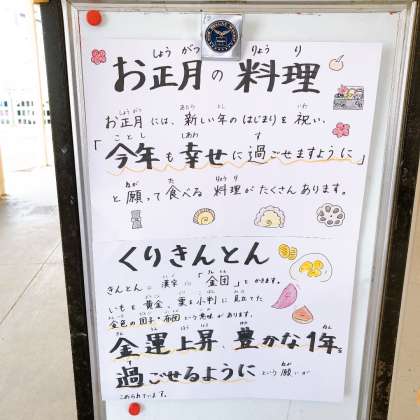 お正月の料理
お正月には、新しい年のはじまりを祝い、
「今年も幸せに過ごせますように」
と願って食べる料理がたくさんあります。
くりきんとん
きんとんは漢字で「金団」とかきます。
いもを黄金、栗を小判に見立てた
金色の団子・布団という意味があります。
金運上昇、豊かな1年を
過ごせるようにという願いが
こめられています。